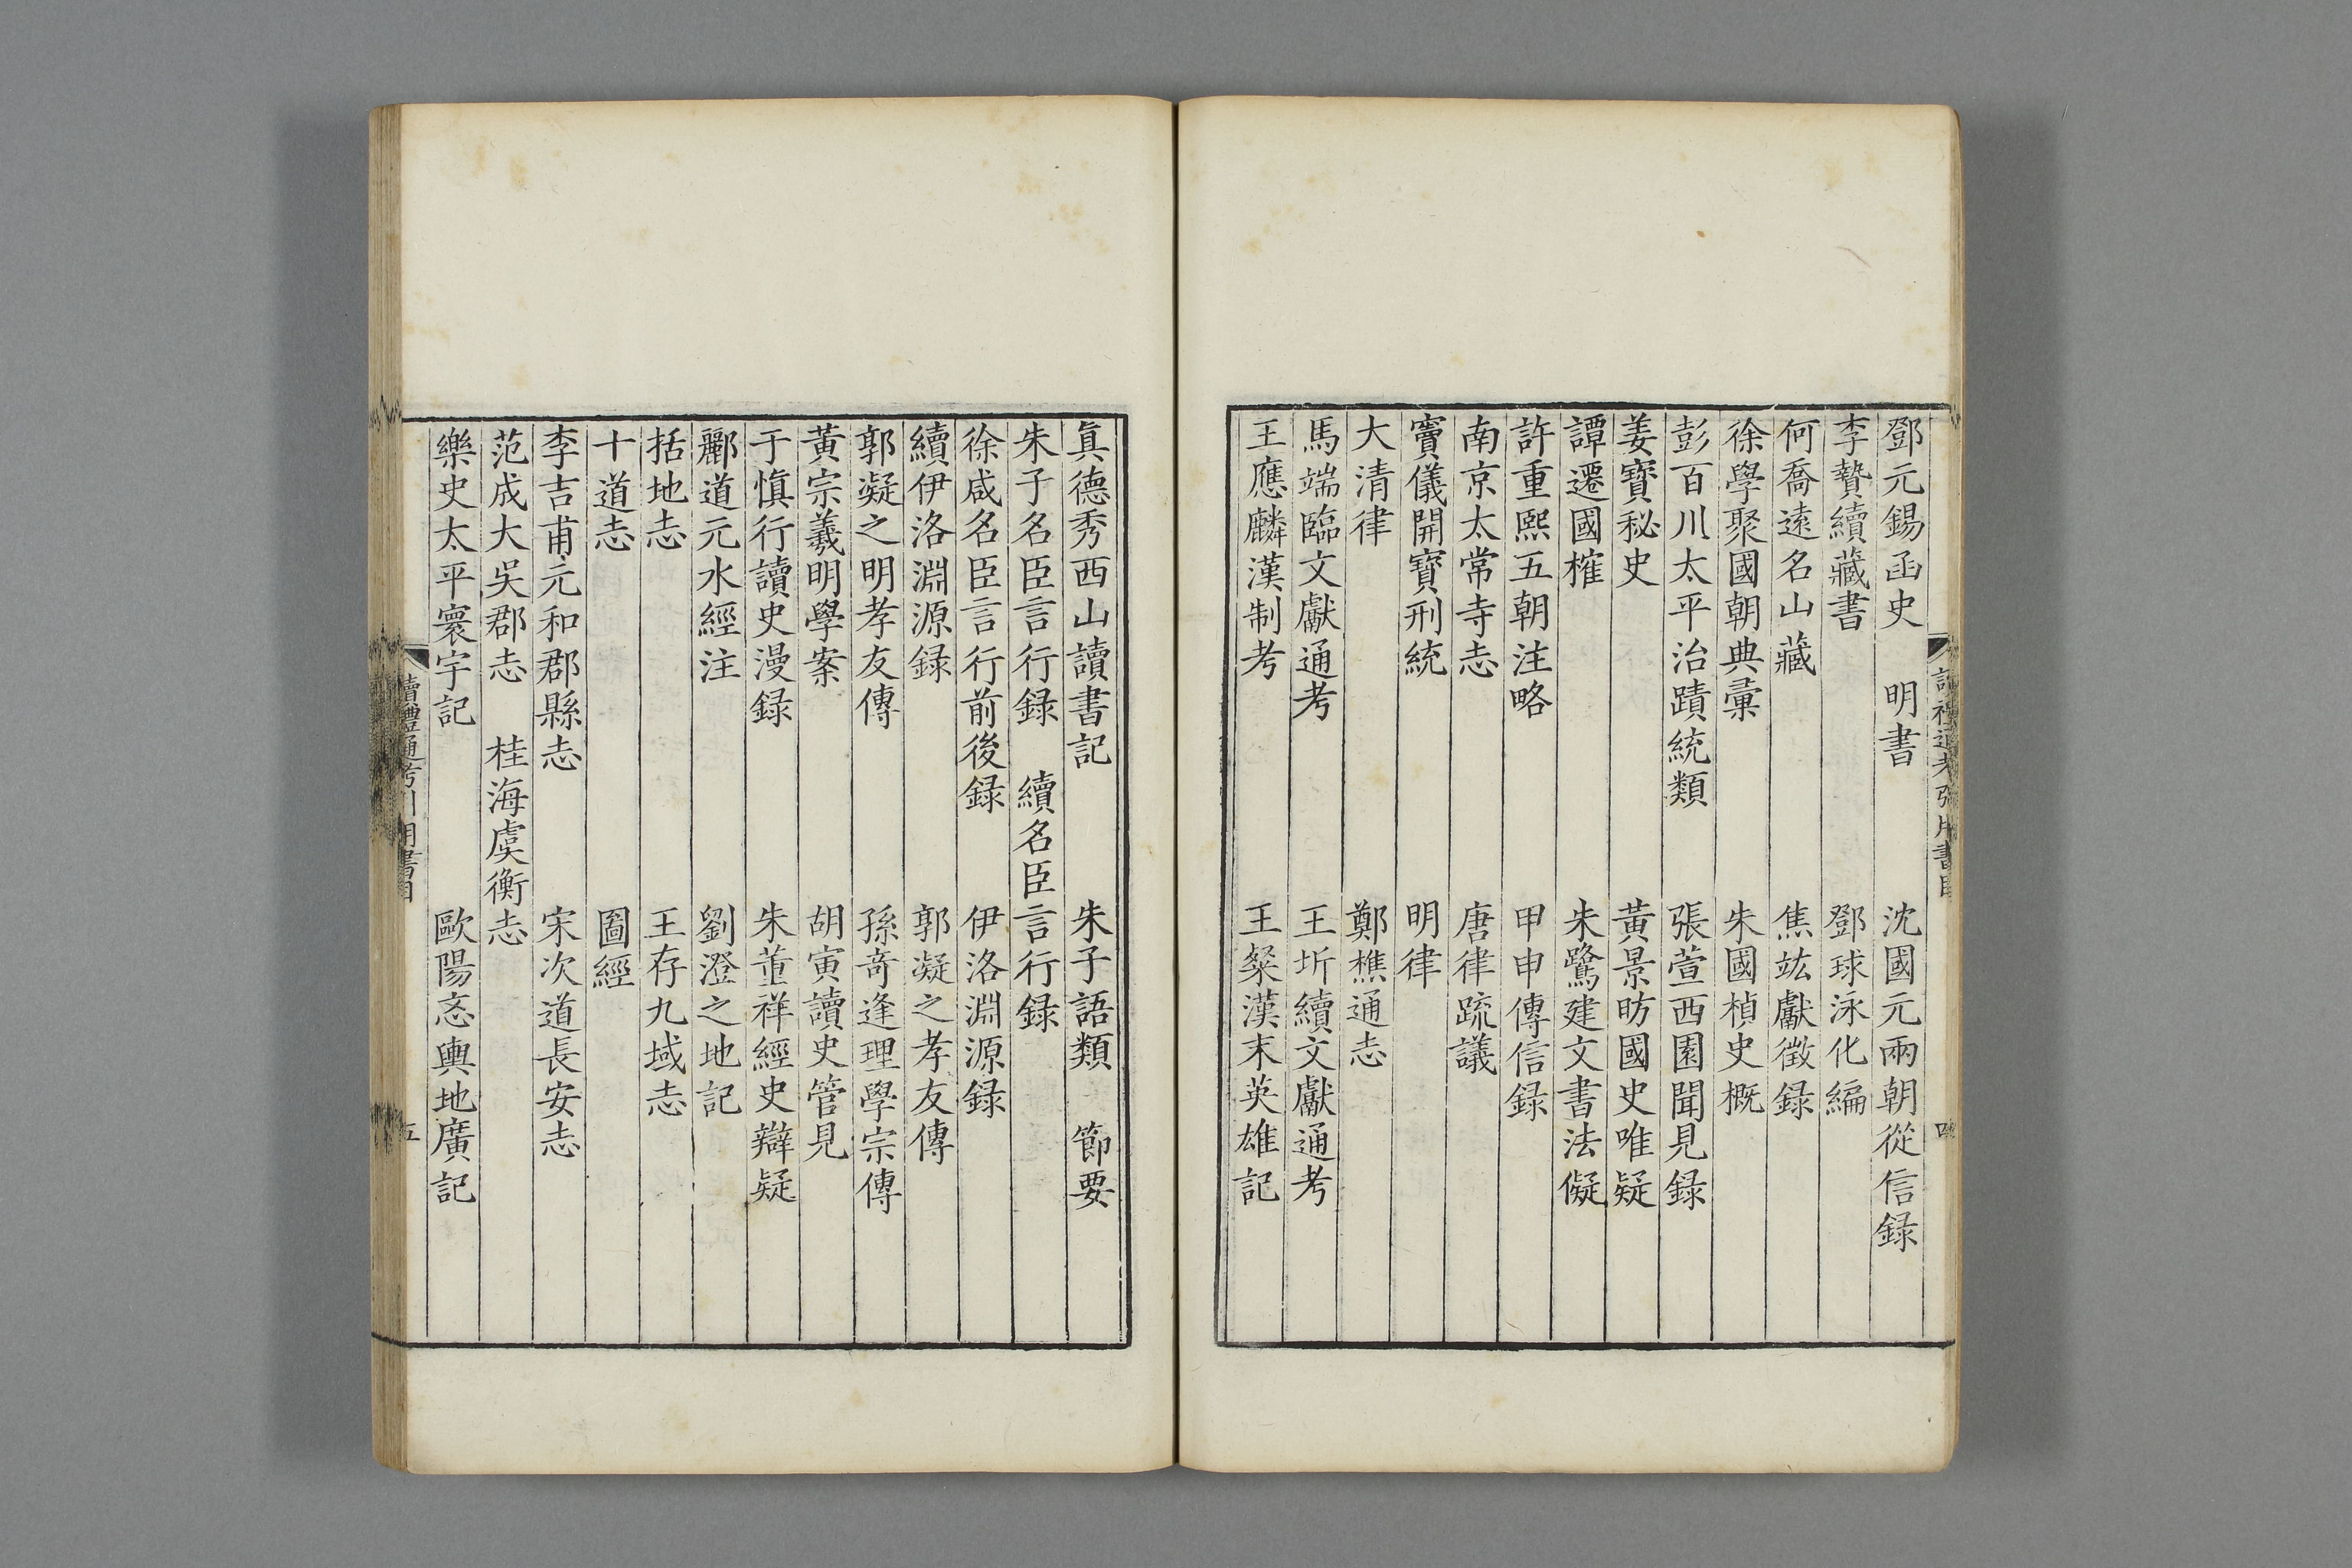 鄧元錫函史　明書　沈國元兩朝從信録
李贄續藏書　鄧球泳化編
何喬遠名山藏　焦竑獻徵録
徐學聚國朝典彙　朱國楨史概
彭百川太平治蹟統類　張萱西園聞見録
姜寶秘史　黃景昉國史唯疑
譚遷國榷　朱鷺建文書法儗
許重熙五朝注略　甲申傳信録
南京太常寺志　唐律疏議
竇儀開寶刑統　明律
大清律　鄭樵通志
馬端臨文獻通考　王圻續文獻通考
王應麟漢制考　王粲漢末英雄記
眞德秀西山讀書記　朱子語類　節要
朱子名臣言行録　續名臣言行録
徐咸名臣言行前後録　伊洛淵源録
續伊洛淵源録　郭凝之孝友傳
郭凝之明孝友傳　孫奇逢理學宗傳
黃宗羲明學案　胡寅讀史管見
于愼行讀史漫録　朱董祥經史辯疑
酈道元水經注　劉澄之地記
括地志　王存九域志
十道志　圖經
李吉甫元和郡縣志　宋次道長安志
范成大吳郡志　桂海虞衡志
樂史太平寰宇記　歐陽忞輿地廣記
讀禮通考引用書目　五